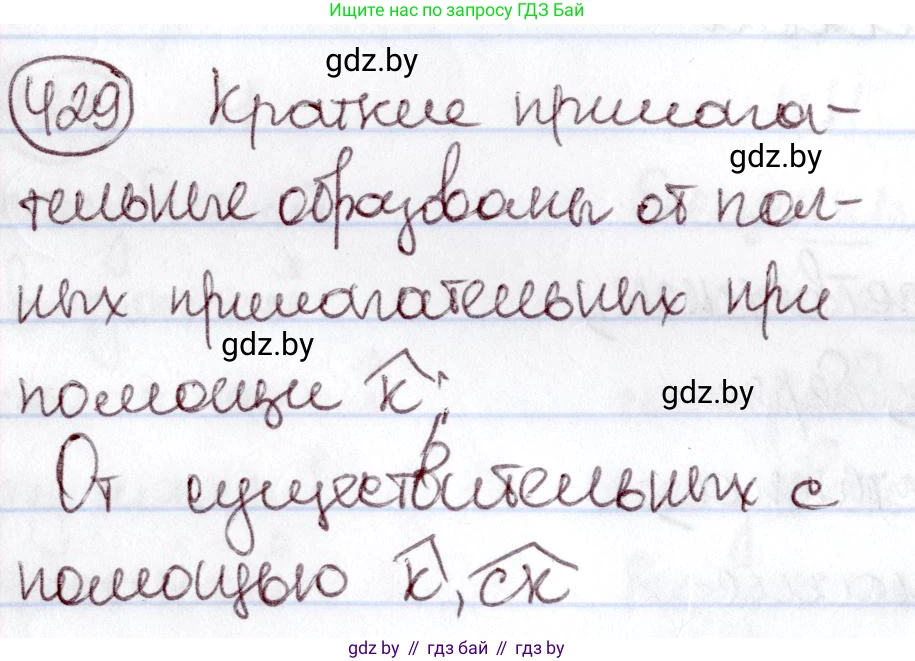 Ищите нас по запросу ГДЗ Бай
gdz.by
429 Краткие прилага-
gdz.by
тельные образованы от пол-
ных прилагательных при
gdz.by
помощи к;
gdz.by
От существительных с
помощью к, ск
gdz.by // гдз бай // gdz.by